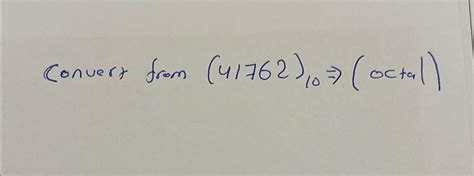 Convert from (41762)₁₀ ⇒ (octal)